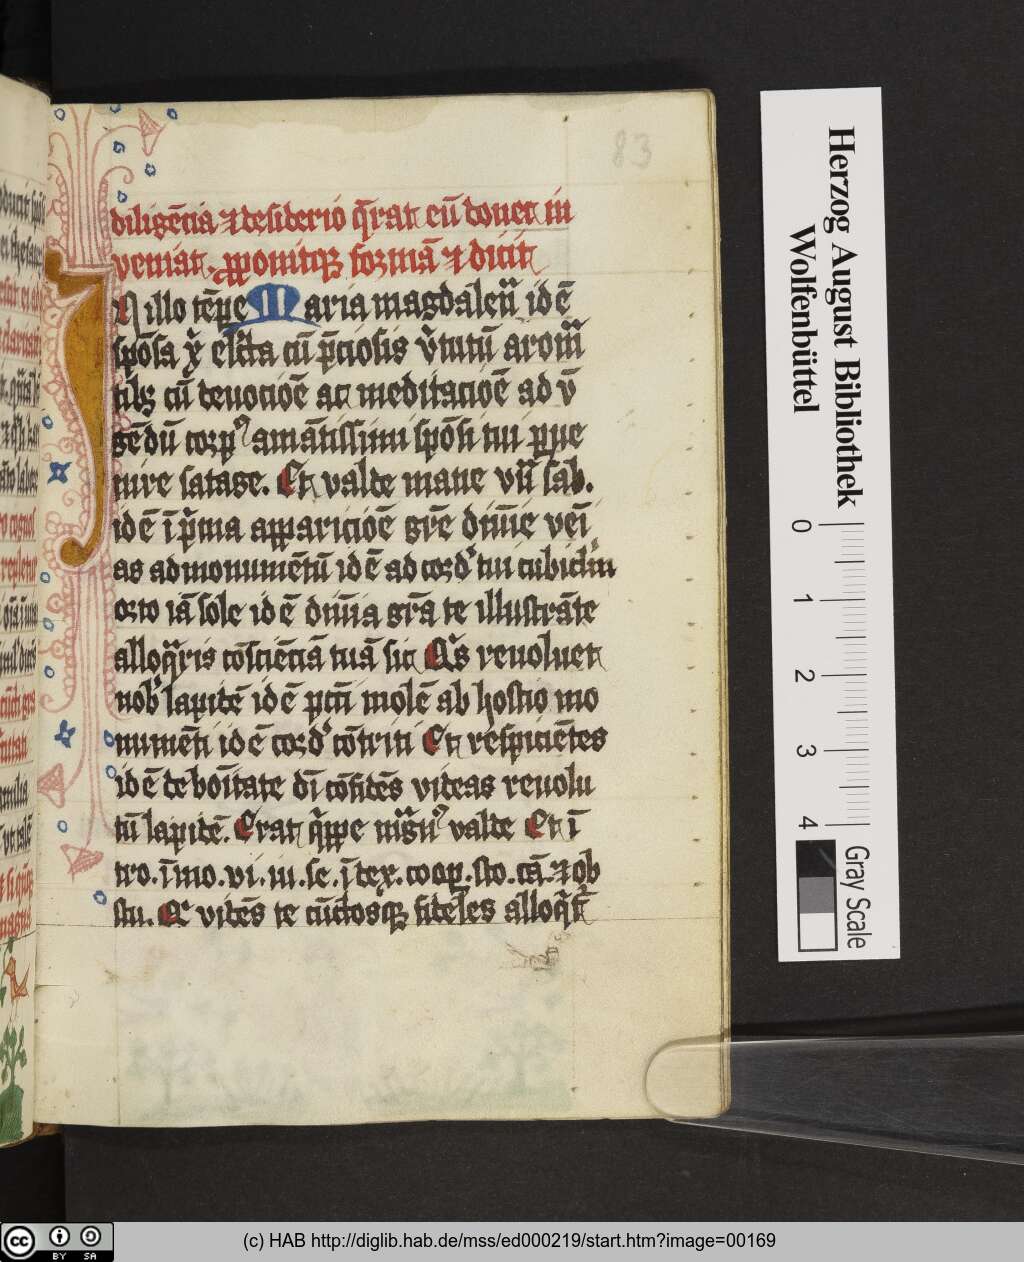 83
diligēcia ⁊ desiderio q̄rat eū donec in
veniat. p̄ponitqꝫ formā ⁊ dicit
IN illo tēpe Maria magdalen̄ id ē
spōsa xp̄i elc̄ta cū p̄ciosis v̄tutū arom̄
tibꝫ cū deuociōe ac meditaciōe ad v̄
gēdū corpꝰ amātissimi spōsi tui p̱ue
nire satage. Et valde mane vn̄ sab.
id ē ī p̄ma apparicioē gr̄e diuīe veī
as ad monumētū id ē ad cord' tui cubicl'm
orto iā sole id ē diuīa gr̄a te illustrāte
alloq̄ris cōsciēciā tuā sic Qis reuoluet
nob' lapidē id ē pcc̄i molē ab hostio mo
numēti id ē cord' cōtriti Et respiciētes
id ē de boītate dī cōfidēs videas reuolu
tū lapidē. Erat q̄ppe magnꝰ valde Et ī
tro. ī mo. vi. iu. se. ī dex. coop. sto. cā. ⁊ ob
stu. Et vidēs te cūctosqꝫ fideles alloq̄t᷑
Herzog August Bibliothek
Wolfenbüttel
0 1 2 3 4
Gray Scale
cc BY SA
(c) HAB http://diglib.hab.de/mss/ed000219/start.htm?image=00169